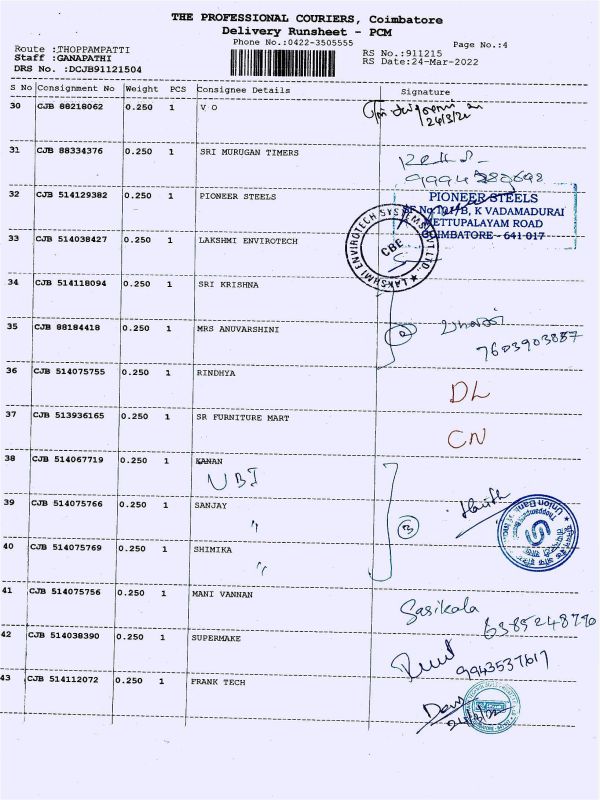 THE PROFESSIONAL COURIERS, Coimbatore
Delivery Runsheet - PCM
Phone No.:0422-3505555
Page No.:4
Route :THOPPAMPATTI
Staff :GANAPATHI
DRS No. :DCJB91121504
RS No.:911215
RS Date:24-Mar-2022
S No Consignment No Weight PCS Consignee Details Signature
30 CJB 88218062 0.250 1 V O
24/3/22
31 CJB 88334376 0.250 1 SRI MURUGAN TIMERS
32 CJB 514129382 0.250 1 PIONEER STEELS
PIONEER STEELS
K VADAMADURAI
METTUPALAYAM ROAD
COIMBATORE - 641 017
33 CJB 514038427 0.250 1 LAKSHMI ENVIROTECH
LAKSHMI ENVIROTECH SYSTEMS PVT LTD.,
CBE
34 CJB 514118094 0.250 1 SRI KRISHNA
35 CJB 88184418 0.250 1 MRS ANUVARSHINI
7603903887
36 CJB 514075755 0.250 1 RINDHYA
DL
37 CJB 513936165 0.250 1 SR FURNITURE MART
CN
38 CJB 514067719 0.250 1 KANAN
UBI
39 CJB 514075766 0.250 1 SANJAY
"
3
40 CJB 514075769 0.250 1 SHIMIKA
"
Union Bank
41 CJB 514075756 0.250 1 MANI VANNAN
Sasikala
6385248770
42 CJB 514038390 0.250 1 SUPERMAKE
9943537617
43 CJB 514112072 0.250 1 FRANK TECH